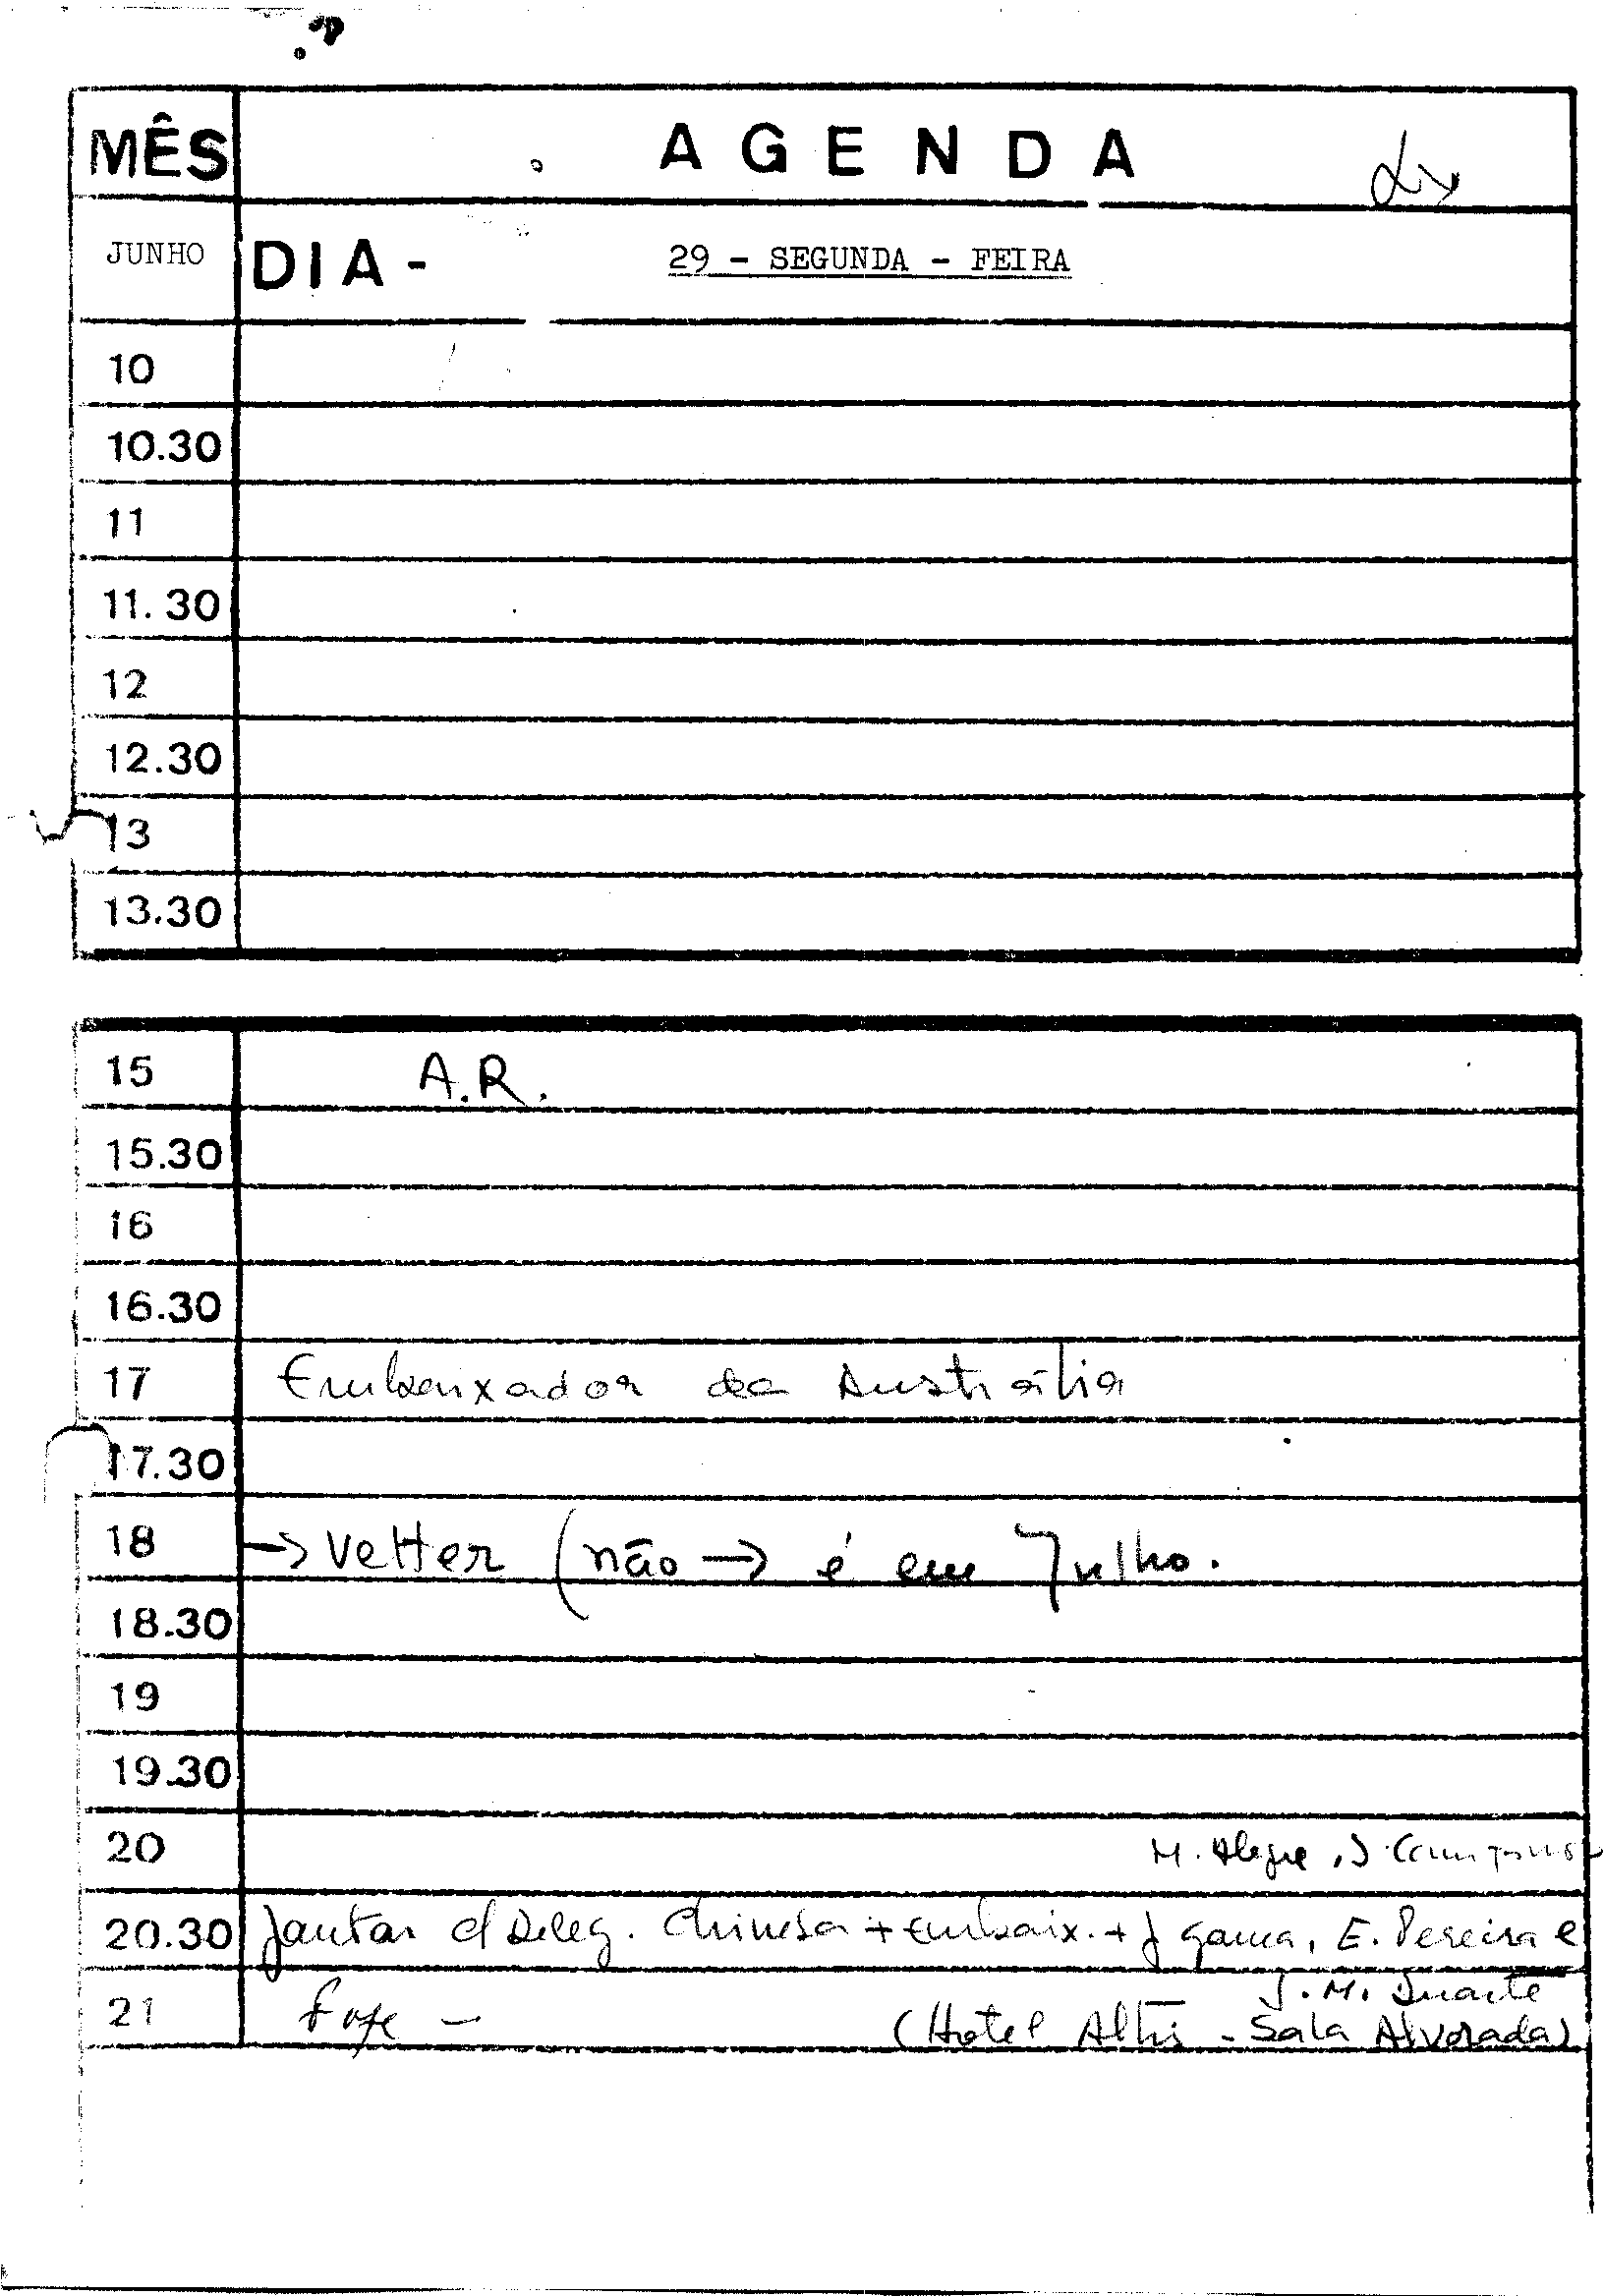 MÊS AGENDA Lx
JUNHO DIA - 29 - SEGUNDA - FEIRA
10
10.30
11
11.30
12
12.30
13
13.30
15 A.R.
15.30
16
16.30
17 Embaixador da Austrália
17.30
18 → Vetter (não → é em Julho.
18.30
19
19.30
20 M. Alegre, J. Campinos
20.30 Jantar c/ Deleg. Chinesa + Embaix. + J Gama, E. Pereira e
J. M. Duarte
21 (Hotel Altis - Sala Alvorada)